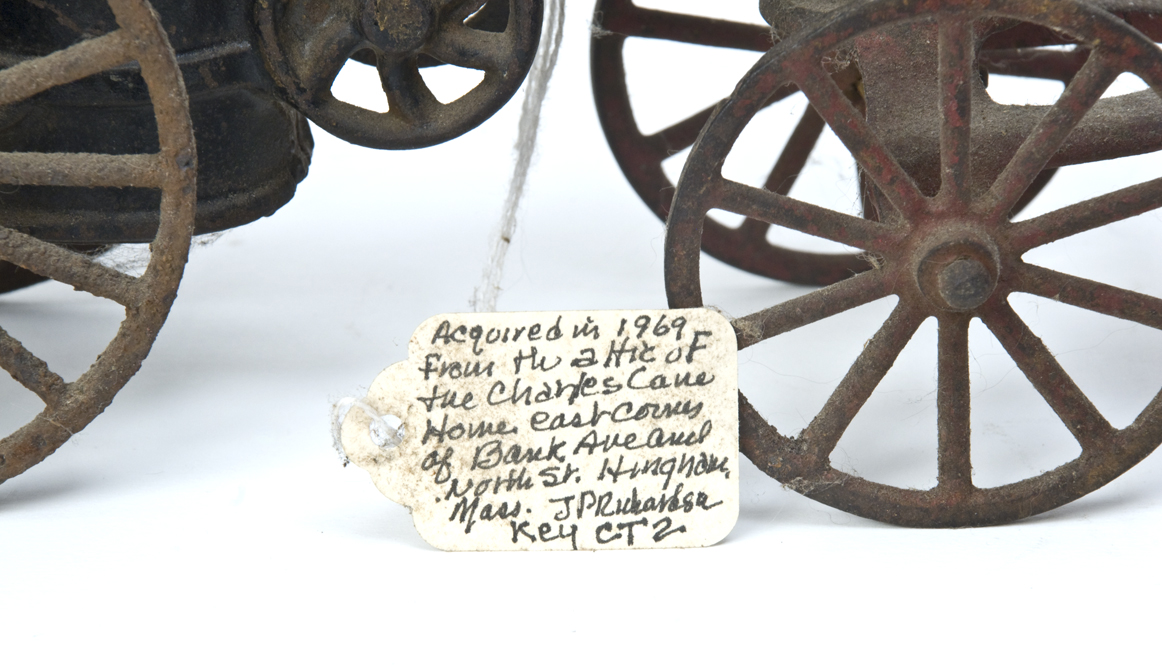 Acquired in 1969
from the attic of
the Charles Cane
Home. east corner
of Bank Ave and
North St. Hingham,
Mass. JPRichardson
Key CT2